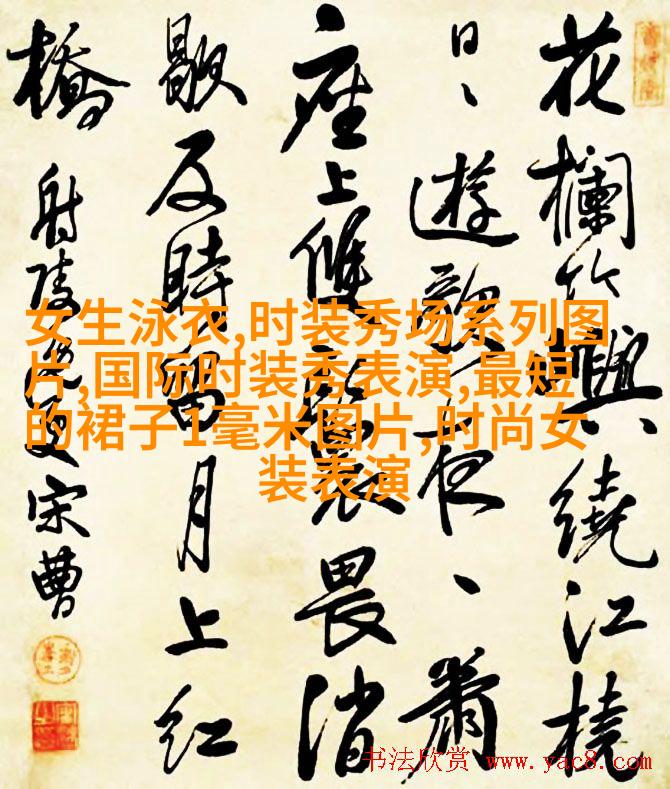 花欄竹嶼繞江橈
日、遊歌夜、蕭
座上裳畏消
反時留月上紅
橋
射陵逸叟宋曹
女生泳衣,时装秀场系列图
片,国际时装秀表演,最短
的裙子1毫米图片,时尚女
装表演
书法欣赏 www.yac8.com